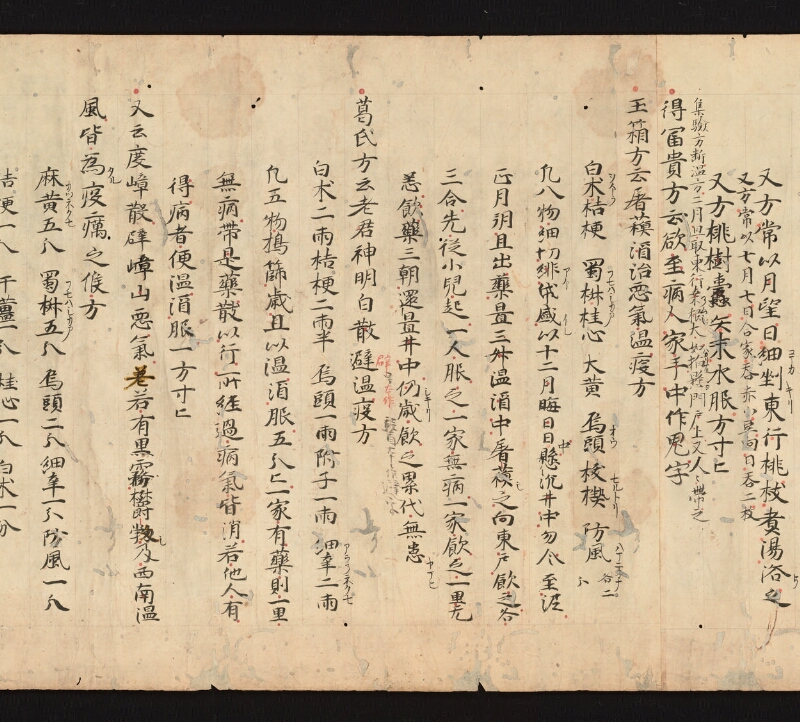 又方常以月望日細剉東行桃枝煮湯浴之
又方常以七月七日合家吞赤小豆向日吞二七枚
又方桃樹蠹矢末水服方寸匕
集驗方断温方二月旦取東行桑根大如指懸門戸上又人々帶之
得冨貴方云欲至病人家手中作鬼字
玉箱方云屠蘓酒治悪氣温疫方
白朮桔梗 蜀椒桂心 大黄 烏頭菝楔 防風 各二分
凡八物細切緋袋盛以十二月晦日日中懸沉井中勿令至泥
正月朔旦出藥置三舛温酒中屠蘓之向東戸飲之各
三合先従小兒起一人服之一家無病一家飲之一里无
恙飲藥三朝還置井中仍歳飲之累代無患
葛氏方云老君神明白散避温疫方
白朮二兩桔梗二兩半 烏頭一兩附子一兩 細辛二兩
凡五物搗篩歳旦以温酒服五分匕一家有藥則一里
無病帶是藥散以行所経過病氣皆消若他人有
得病者便温酒服一方寸匕
又云度嶂散辟嶂山悪氣若有黒霧欝勃及西南温
風皆為疫癘之候方
麻黄五分 蜀椒五分 烏頭二分細辛一分防風一分
桔梗一分 干薑一分 桂心一分 白朮一分